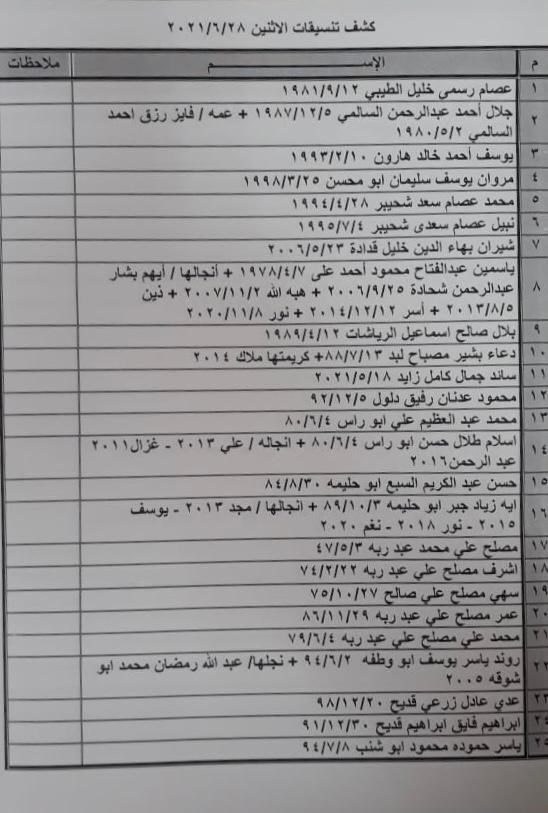 كشف تنسيقات الاثنين ٢٠٢١/٦/٢٨
م الإســـــــم ملاحظات
١ عصام رسمي خليل الطيبي ١٩٨١/٩/١٢
٢ جلال أحمد عبدالرحمن السالمي ١٩٨٧/١٢/٥ + عمه / فايز رزق احمد
السالمي ١٩٨٠/٥/٢
٣ يوسف أحمد خالد هارون ١٩٩٣/٢/١٠
٤ مروان يوسف سليمان ابو محسن ١٩٩٨/٣/٢٥
٥ محمد عصام سعد شحيبر ١٩٩٤/٤/٢٨
٦ نبيل عصام سعدى شحيبر ١٩٩٥/٧/٤
٧ شيران بهاء الدين خليل قدادة ٢٠٠٦/٥/٢٣
ياسمين عبدالفتاح محمود أحمد على ١٩٧٨/٤/٧ + أنجالها / أيهم بشار
٨ عبدالرحمن شحادة ٢٠٠٦/٩/٢٥ + هبه الله ٢٠٠٧/١١/٢ + ذين
٢٠١٣/٨/٥ + أسر ٢٠١٤/١٢/١٢ + نور ٢٠٢٠/١١/٨
٩ بلال صالح اسماعيل الرياشات ١٩٨٩/٤/١٢
١٠ دعاء بشير مصباح لبد ٨٨/٧/١٣+ كريمتها ملاك ٢٠١٤
١١ ساند جمال كامل زايد ٢٠٢١/٥/١٨
١٢ محمود عدنان رفيق دلول ٩٢/١٢/٥
١٣ محمد عبد العظيم علي ابو راس ٨٠/٦/٤
١٤ اسلام طلال حسن ابو راس ٨٠/٦/٤ + انجاله / علي ٢٠١٣ - غزال٢٠١١
عبد الرحمن٢٠١٦
١٥ حسن عبد الكريم السبع ابو حليمه ٨٤/٨/٣٠
١٦ ايه زياد جبر ابو حليمه ٨٩/١٠/٣ + انجالها / مجد ٢٠١٣ - يوسف
٢٠١٥ - نور ٢٠١٨ - نغم ٢٠٢٠
١٧ مصلح علي محمد عبد ربه ٤٧/٥/٣
١٨ اشرف مصلح علي عبد ربه ٧٤/٢/٢٢
١٩ سهي مصلح علي صالح ٧٥/١٠/٢٧
٢٠ عمر مصلح علي عبد ربه ٨٦/١١/٢٩
٢١ محمد علي مصلح علي عبد ربه ٧٩/٦/٤
٢٢ روند ياسر يوسف ابو وطفه ٩٤/٦/٢ + نجلها/ عبد الله رمضان محمد ابو
شوقه ٢٠٠٥
٢٣ عدي عادل زرعي قديح ٩٨/١٢/٢٠
٢٤ ابراهيم فايق ابراهيم قديح ٩١/١٢/٣٠
٢٥ ياسر حموده محمود ابو شنب ٩٤/٧/٨